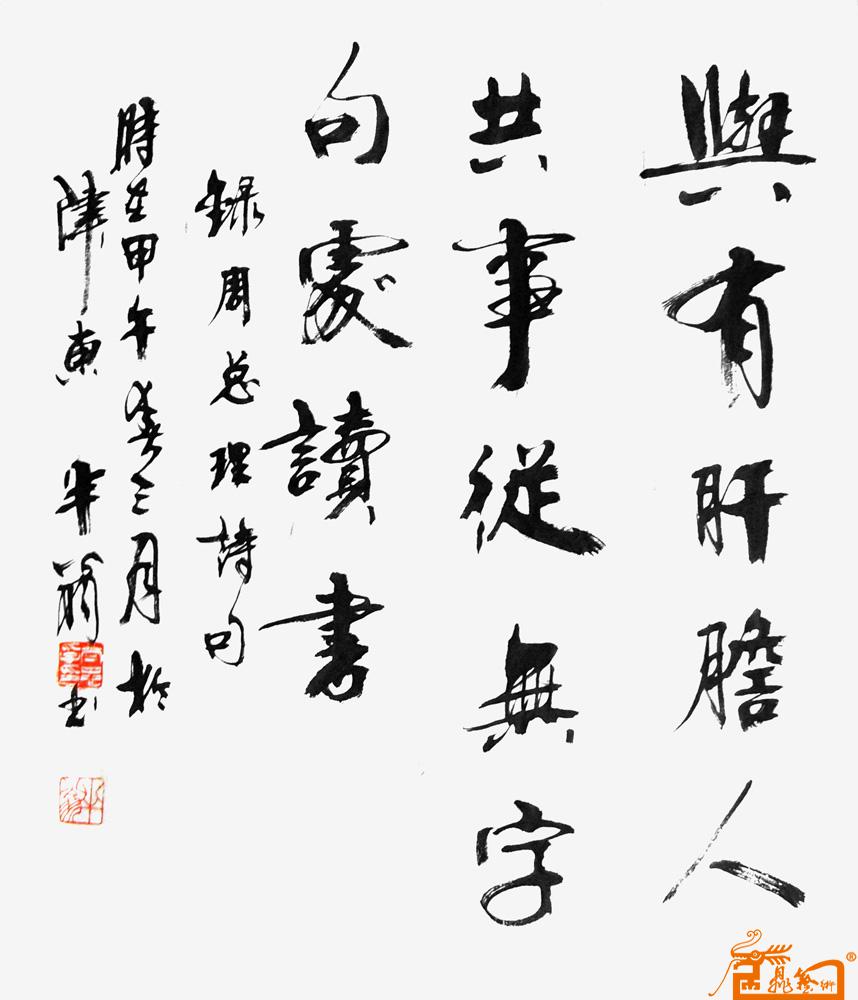 與有肝膽人
共事從無字
句處讀書
録周总理詩句
時在甲午春三月於
陳東半翁书